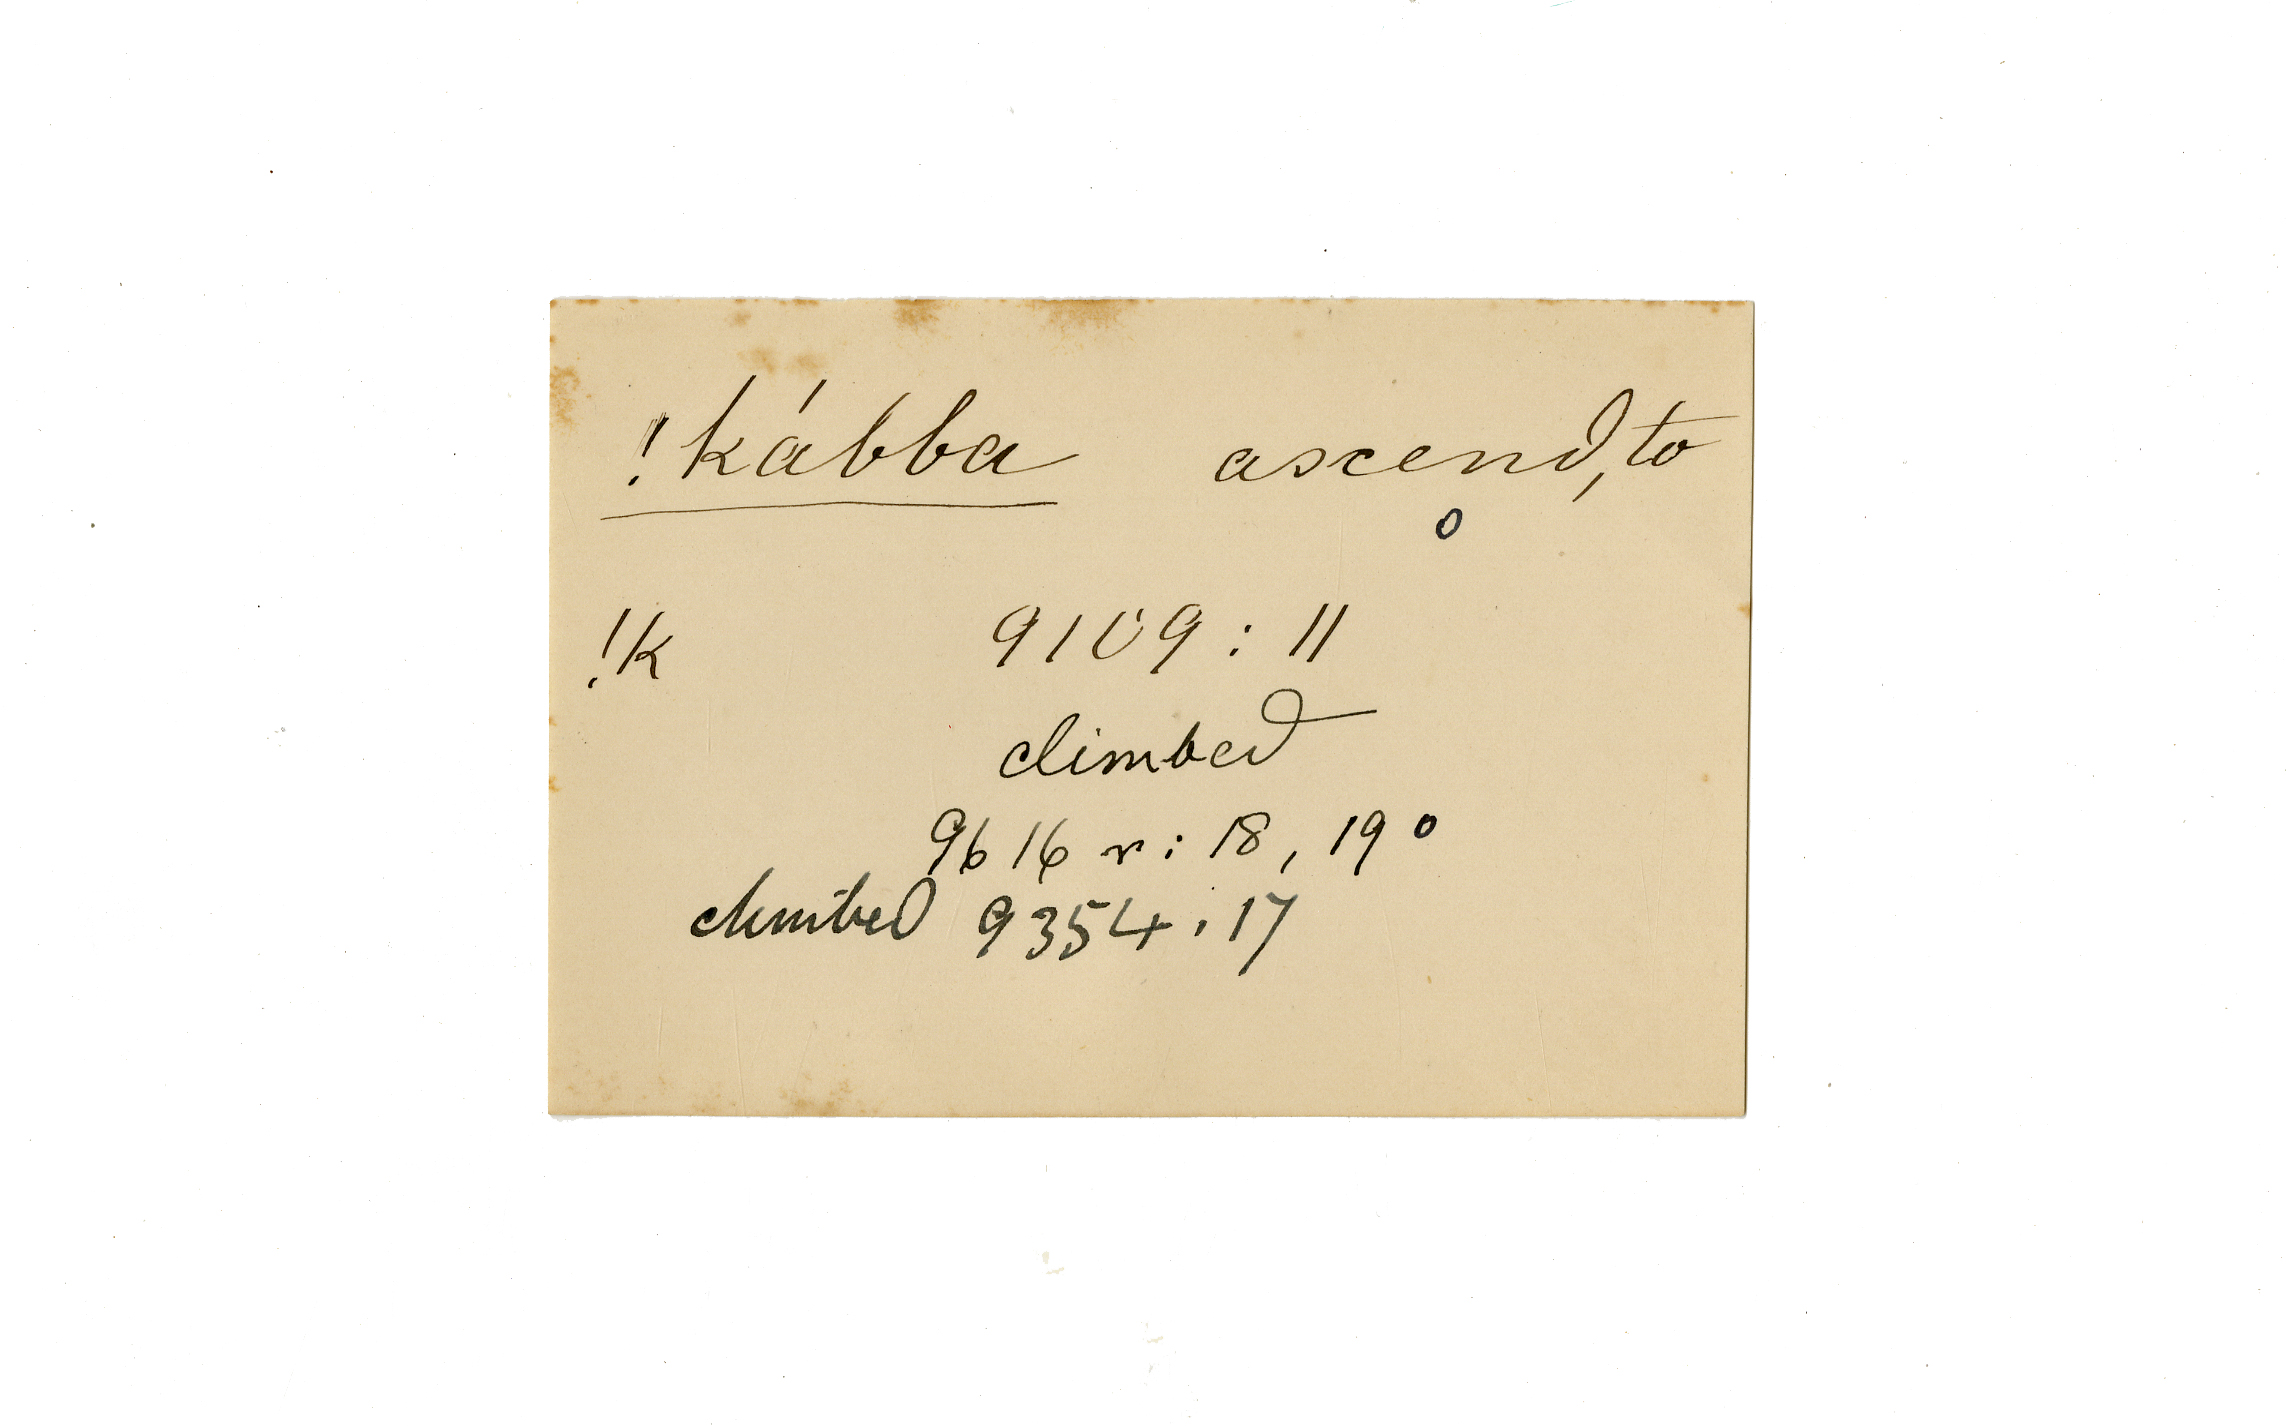 !kábba ascend, to
o
!k 9109 : 11
climbed
9616 r : 18, 19 o
climbed 9354 : 17